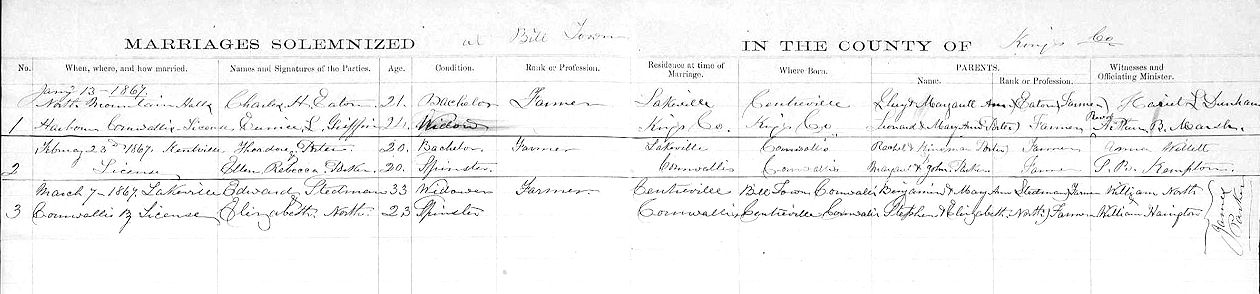 MARRIAGES SOLEMNIZED at Bill Town IN THE COUNTY OF Kings Co
No. When, where, and how married. Names and Signatures of the Parties. Age. Condition. Rank or Profession. Residence at time of Marriage. Where Born. PARENTS. Name. Rank or Profession. Witnesses and Officiating Minister.
Jany 13-1867.
North Mountain Halls Charles H. Eaton 21. Bachelor Farmer Lakeville Centreville Margarett Ann Eaton Farmer
1 Harbour Cornwallis Eunice L. Griffin 21. Widow Kings Co. Kings Co. Leonard & Mary Ann Farmer B.
1867. Kentville Theodore 20. Bachelor Farmer Lakeville Cornwallis Rachel & Farmer Anna Willett
2 License Ellen Rebecca 20. Spinster Cornwallis Cornwallis Margaret & John Farmer Kempton.
March 7-1867. Lakeville Edward Stedman 33 Widower Farmer. Centreville Bill Town Cornwallis Benjamin & Mary Ann Stedman Farmer William North
3 Cornwallis By License Elizabeth North. 23 Spinster Cornwallis Centreville Cornwallis Stephen & Elizabeth North Farmer William Harington
James Parker